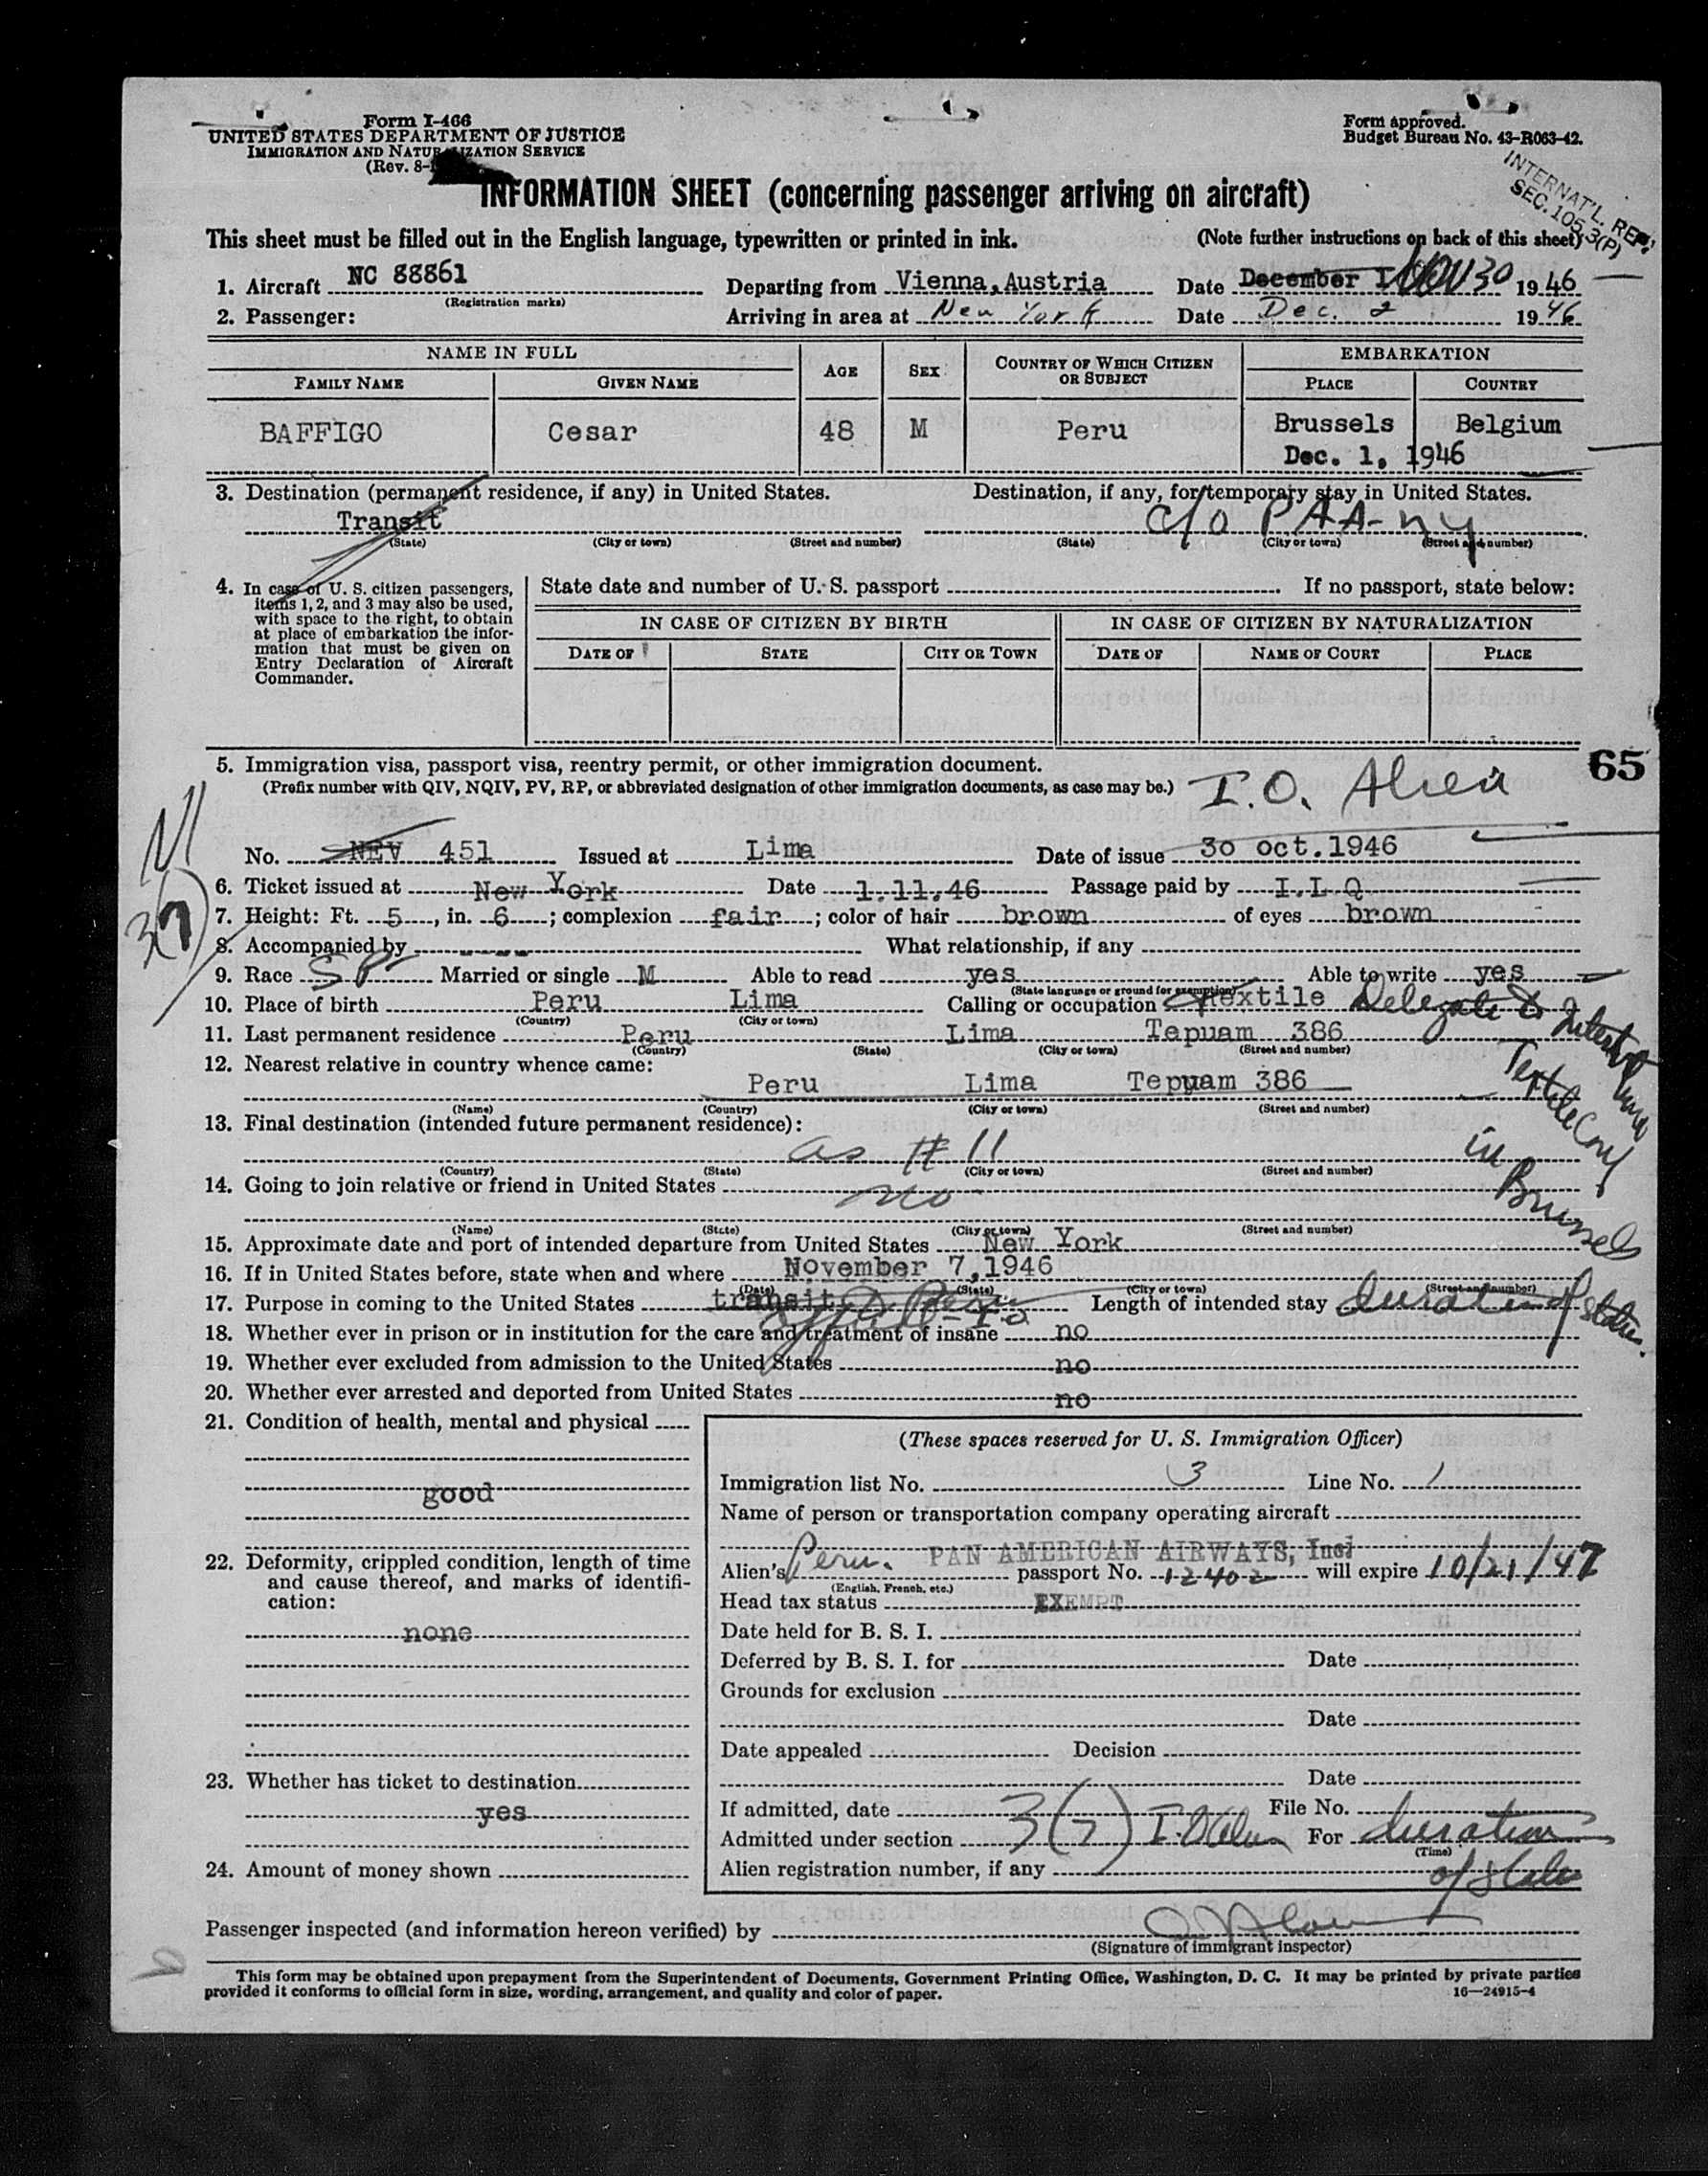 Form I-466
UNITED STATES DEPARTMENT OF JUSTICE
IMMIGRATION AND NATURALIZATION SERVICE
(Rev. 8-
Form approved.
Budget Bureau No. 43-R063-42.
INTERNAT'L. REP.
SEC. 105.3(P)
INFORMATION SHEET (concerning passenger arriving on aircraft)
This sheet must be filled out in the English language, typewritten or printed in ink. (Note further instructions on back of this sheet)
1. Aircraft NC 88861 Departing from Vienna, Austria Date December 1 Nov 30 1946
(Registration marks)
2. Passenger: Arriving in area at New York Date Dec. 2 1946
NAME IN FULL AGE SEX COUNTRY OF WHICH CITIZEN OR SUBJECT EMBARKATION
FAMILY NAME GIVEN NAME PLACE COUNTRY
BAFFIGO Cesar 48 M Peru Brussels Belgium
Dec. 1, 1946
3. Destination (permanent residence, if any) in United States. Destination, if any, for temporary stay in United States.
Transit c/o PAA-NY
(State) (City or town) (Street and number) (State) (City or town) (Street and number)
4. In case of U. S. citizen passengers,
items 1, 2, and 3 may also be used,
with space to the right, to obtain
at place of embarkation the infor-
mation that must be given on
Entry Declaration of Aircraft
Commander.
State date and number of U. S. passport If no passport, state below:
IN CASE OF CITIZEN BY BIRTH IN CASE OF CITIZEN BY NATURALIZATION
DATE OF STATE CITY OR TOWN DATE OF NAME OF COURT PLACE
65
5. Immigration visa, passport visa, reentry permit, or other immigration document.
(Prefix number with QIV, NQIV, PV, RP, or abbreviated designation of other immigration documents, as case may be.) I.O. Alien
No. NEV 451 Issued at Lima Date of issue 30 oct.1946
6. Ticket issued at New York Date 1.11.46 Passage paid by I.L.O.
3(7)
7. Height: Ft. 5, in. 6; complexion fair; color of hair brown of eyes brown
8. Accompanied by ---- What relationship, if any
9. Race Sp Married or single M Able to read yes Able to write yes
(State language or ground for exemption)
10. Place of birth Peru Lima Calling or occupation Textile Delegate to
(Country) (City or town)
Textile Conf
in
Brussels
11. Last permanent residence Peru Lima Tepuam 386
(Country) (State) (City or town) (Street and number)
12. Nearest relative in country whence came:
Peru Lima Tepuam 386
(Name) (Country) (City or town) (Street and number)
13. Final destination (intended future permanent residence):
as # 11
(Country) (State) (City or town) (Street and number)
14. Going to join relative or friend in United States no
(Name) (State) (City or town) (Street and number)
15. Approximate date and port of intended departure from United States New York
16. If in United States before, state when and where November 7,1946
(Date) (State) (City or town) (Street and number)
17. Purpose in coming to the United States transit to Peru Length of intended stay duration of status.
18. Whether ever in prison or in institution for the care and treatment of insane no
19. Whether ever excluded from admission to the United States no
20. Whether ever arrested and deported from United States no
21. Condition of health, mental and physical
good
22. Deformity, crippled condition, length of time
and cause thereof, and marks of identifi-
cation:
none
23. Whether has ticket to destination
yes
24. Amount of money shown
(These spaces reserved for U. S. Immigration Officer)
Immigration list No. 3 Line No. 1
Name of person or transportation company operating aircraft
PAN AMERICAN AIRWAYS, Inc.
Alien's Peru. passport No. 12402 will expire 10/21/47
(English, French, etc.)
Head tax status EXEMPT
Date held for B. S. I.
Deferred by B. S. I. for Date
Grounds for exclusion
Date
Date appealed Decision
Date
If admitted, date File No.
Admitted under section 3(7) I.O Alien For duration
(Time)
of status
Alien registration number, if any
Passenger inspected (and information hereon verified) by
(Signature of immigrant inspector)
This form may be obtained upon prepayment from the Superintendent of Documents, Government Printing Office, Washington, D. C. It may be printed by private parties
provided it conforms to official form in size, wording, arrangement, and quality and color of paper. 16—24915-4